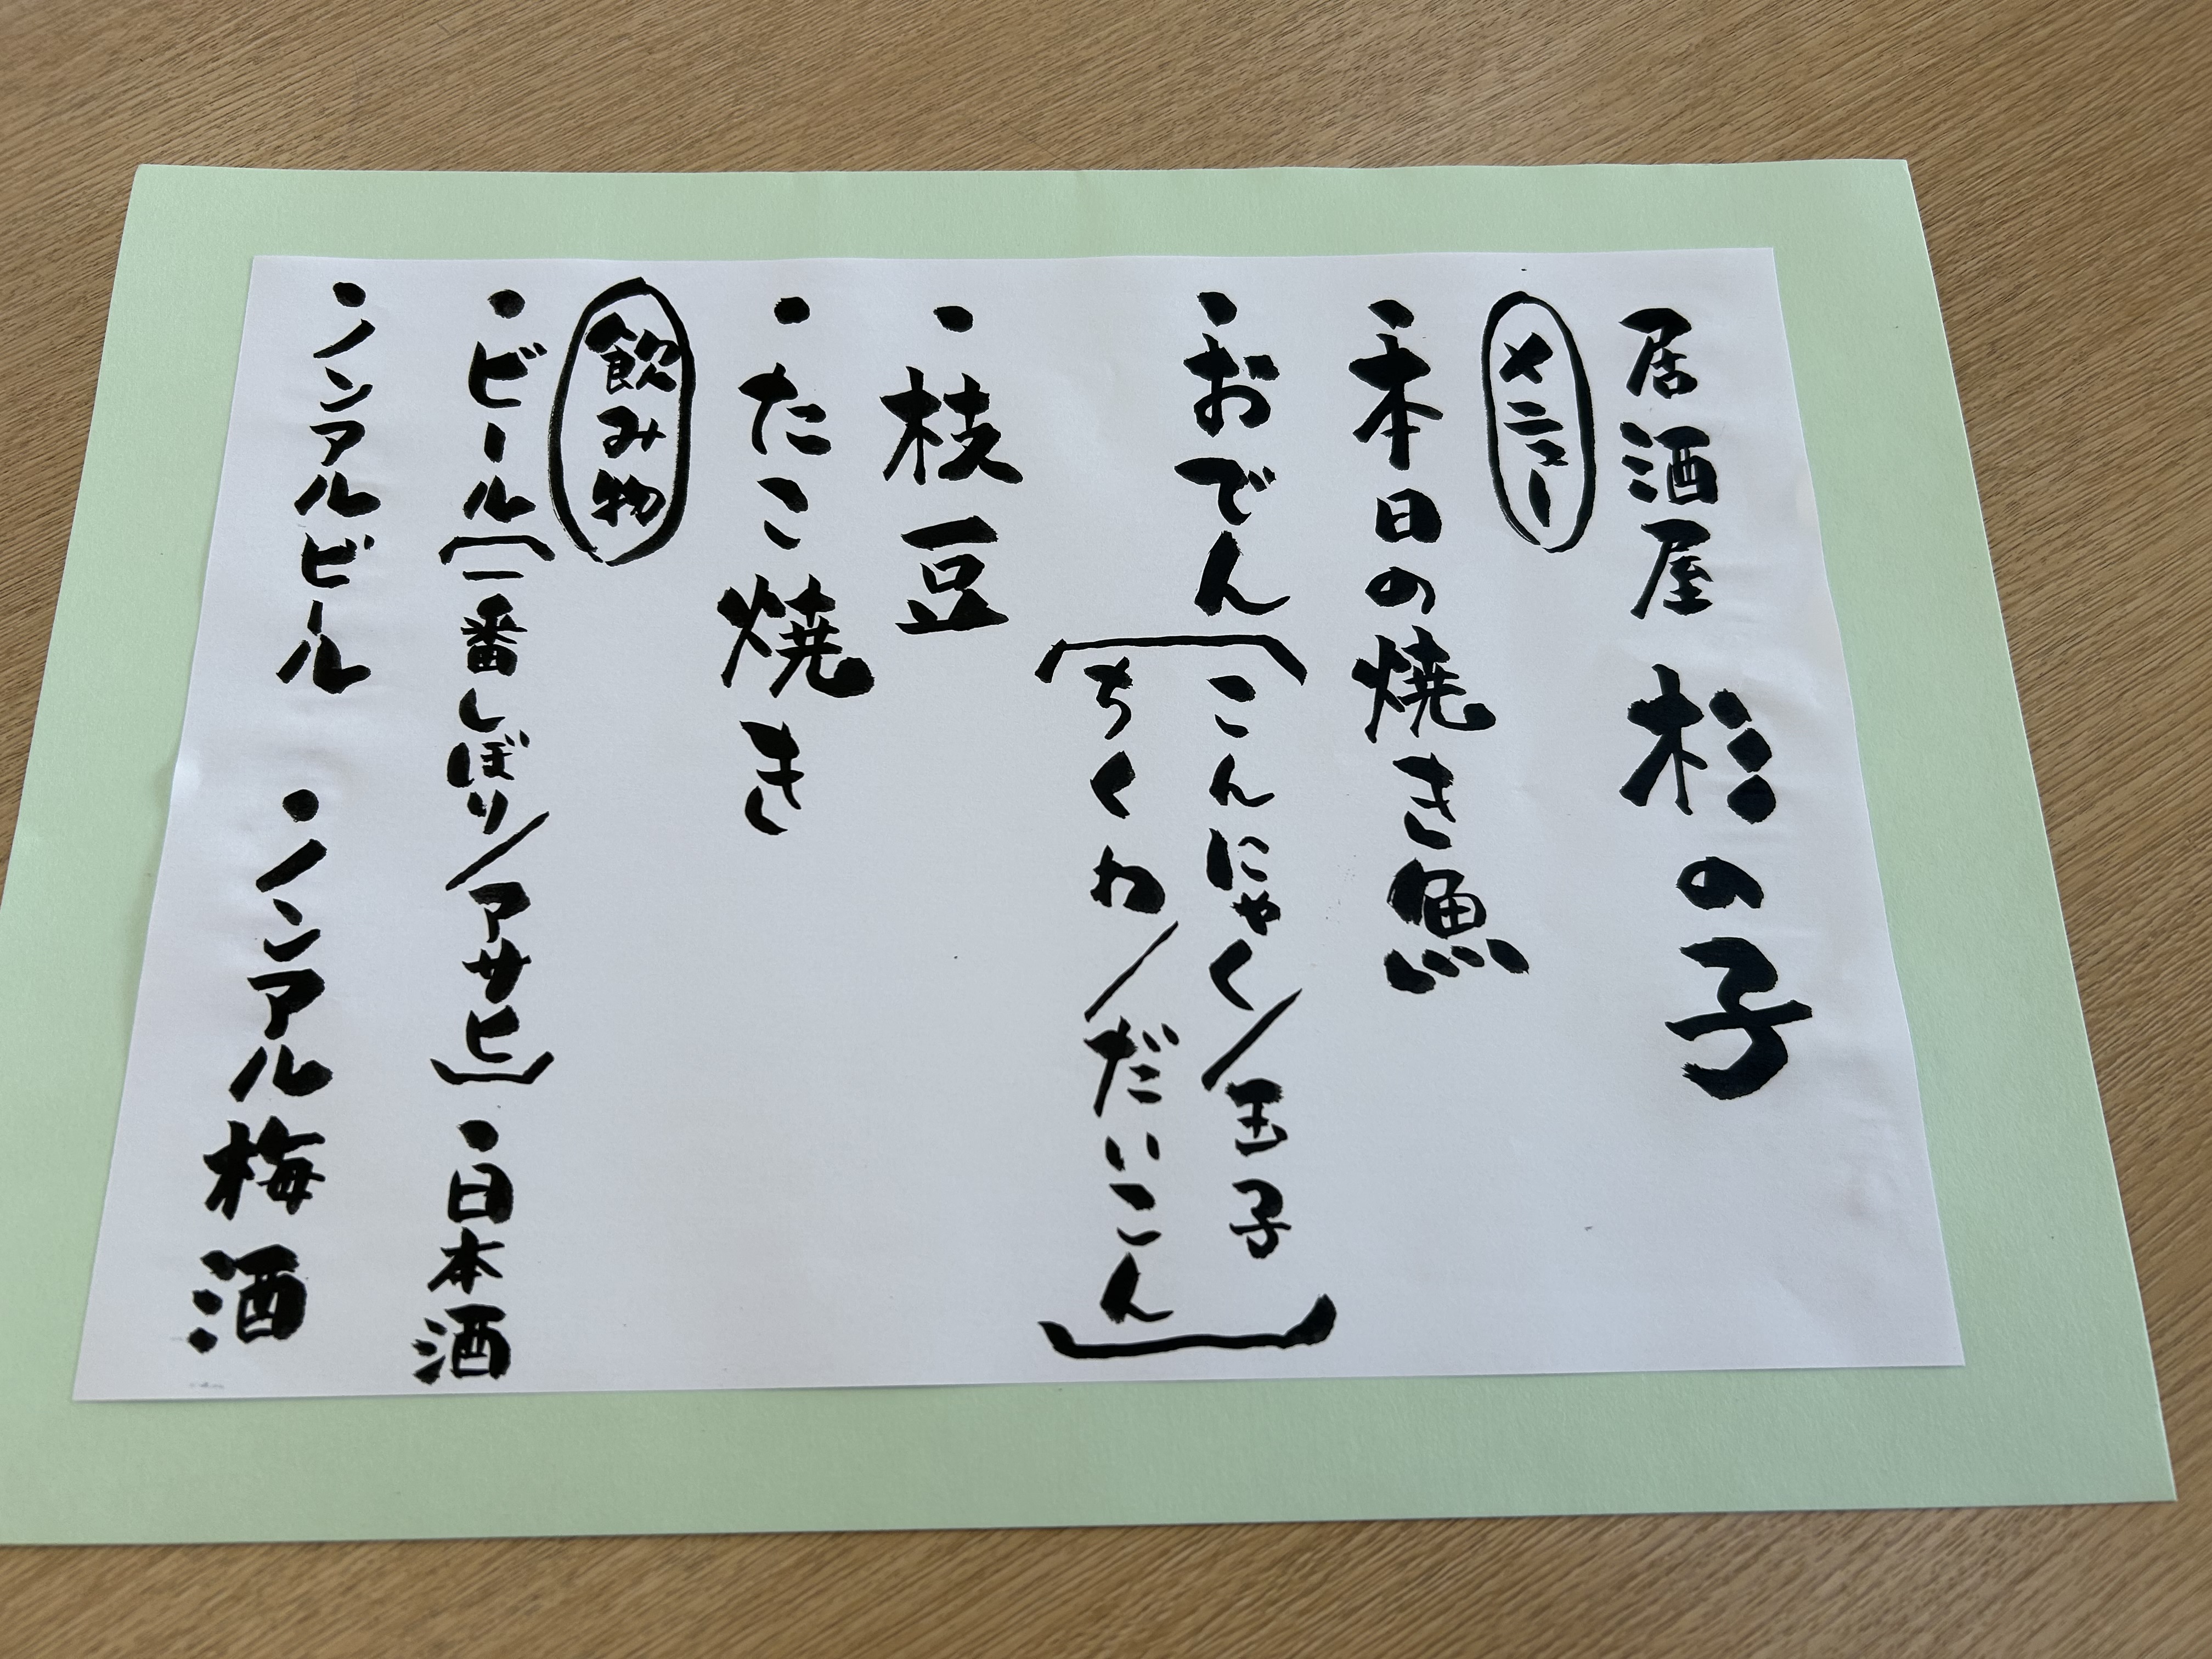 居酒屋 杉の子
メニュー
・本日の焼き魚
・おでん〔こんにゃく/玉子
ちくわ/だいこん〕
・枝豆
・たこ焼き
飲み物
・ビール〔一番しぼり/アサヒ〕・日本酒
・ノンアルビール ・ノンアル梅酒